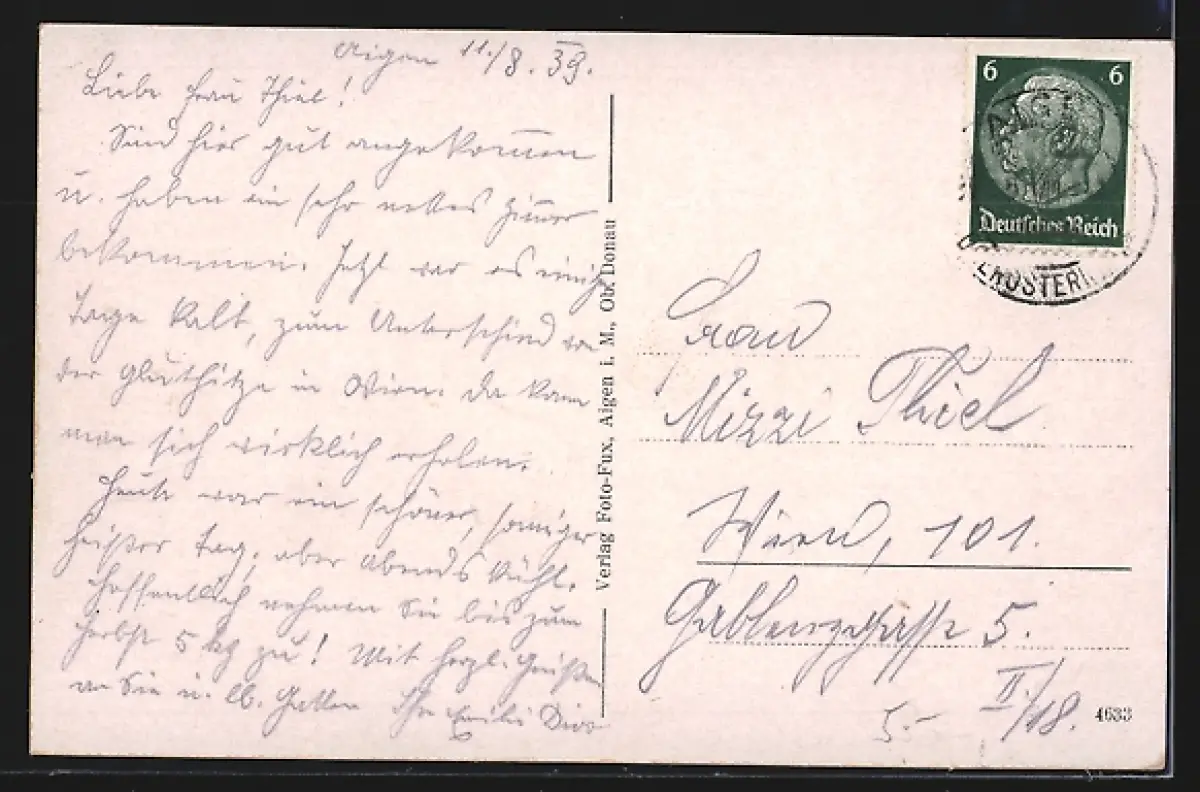 Aigen 11./8. 39.
Liebe Frau Thiel!
Sind hier gut angekommen
u. haben ein sehr nettes Zimmer
bekommen. Jetzt war es einige
Tage kalt, zum Unterschied von
der Gluthitze in Wien. Da kann
man sich wirklich erholen.
Heute war ein schöner, sonniger
heißer Tag, aber abends kühl.
Hoffentlich nehmen Sie bis zum
Herbst 5 kg zu! Mit herzl. Grüßen
an Sie u. lb. Gatten Ihre Emilie
Verlag Foto-Fux, Aigen i. M., Ob. Donau
6 6
Deutsches Reich
Frau
Mizzi Thiel
Wien, 101.
Gablenzgasse 5.
II./18.
5.-
4633